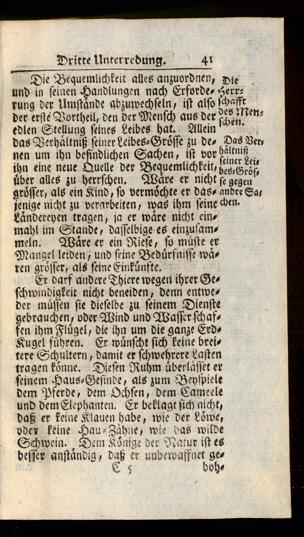 Dritte Unterredung. 41
Die Bequemlichkeit alles anzuordnen,
und in seinen Handlungen nach Erforde-
rung der Umstände abzuwechseln, ist also
der erste Vortheil, den der Mensch aus der
edlen Stellung seines Leibes hat. Allein
das Verhältniß seiner Leibes-Grösse zu de-
nen um ihn befindlichen Sachen, ist vor
ihn eine neue Quelle der Bequemlichkeit,
über alles zu herrschen. Wäre er nicht
grösser, als ein Kind, so vermöchte er das-
jenige nicht zu verarbeiten, was ihm seine
Ländereyen tragen, ja er wäre nicht ein-
mahl im Stande, dasselbige es einzusam-
meln. Wäre er ein Riese, so müste er
Mangel leiden, und seine Bedürfnisse wä-
ren grösser, als seine Einkünfte.
Er darf andere Thiere wegen ihrer Ge-
schwindigkeit nicht beneiden, denn entwe-
der müssen sie dieselbe zu seinem Dienste
gebrauchen, oder Wind und Wasser schaf-
fen ihm Flügel, die ihn um die ganze Erd-
Kugel führen. Er wünscht sich keine brei-
tere Schultern, damit er schwehrere Lasten
tragen könne. Diesen Ruhm überlässet er
seinem Haus-Gesinde, als zum Beyspiele
dem Pferde, dem Ochsen, dem Cameele
und dem Elephanten. Er beklagt sich nicht,
daß er keine Klauen habe, wie der Löwe,
oder keine Hau-Zähne, wie das wilde
Schwein. Dem Könige der Natur ist es
besser anständig, daß er unbewaffnet ge-
C 5 boh-
Die
Herr-
schafft
des Men-
schen.
Das Ver-
hältniß
seiner Lei-
bes-Grös-
se gegen
andre Sa-
chen.